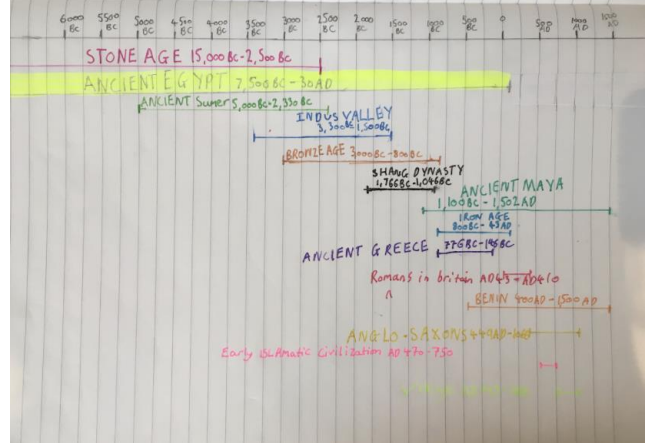 6000 BC 5500 BC 5000 BC 4500 BC 4000 BC 3500 BC 3000 BC 2500 BC 2000 BC 1500 BC 1000 BC 500 BC 0 500 AD 1000 AD
STONE AGE 15,000BC-2,500BC
ANCIENT EGYPT 7,500BC-30AD
ANCIENT Sumer 5,000BC-2,330BC
INDUS VALLEY
3,300BC 1,500BC
BRONZE AGE 3,000BC-800BC
SHANG DYNASTY
1,766BC-1,046BC
ANCIENT MAYA
1,100BC-1,502AD
IRON AGE
800BC-43AD
ANCIENT GREECE 776BC-146BC
Romans in britain AD43-AD410
BENIN 900AD-1500AD
ANGLO-SAXONS
Early ISLAmatic Civilization AD 470-750